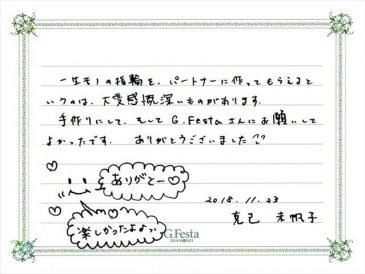 一生モノの指輪を、パートナーに作ってもらえると
いうのは、大変感慨深いものがあります。
手作りにして、そして G.Festaさんにお願いして
よかったです。 ありがとうございました♡♡
ありがとー♡
楽しかったよぉっ
2018.11.23
克己 未帆子
G.Festa
DIAMOND